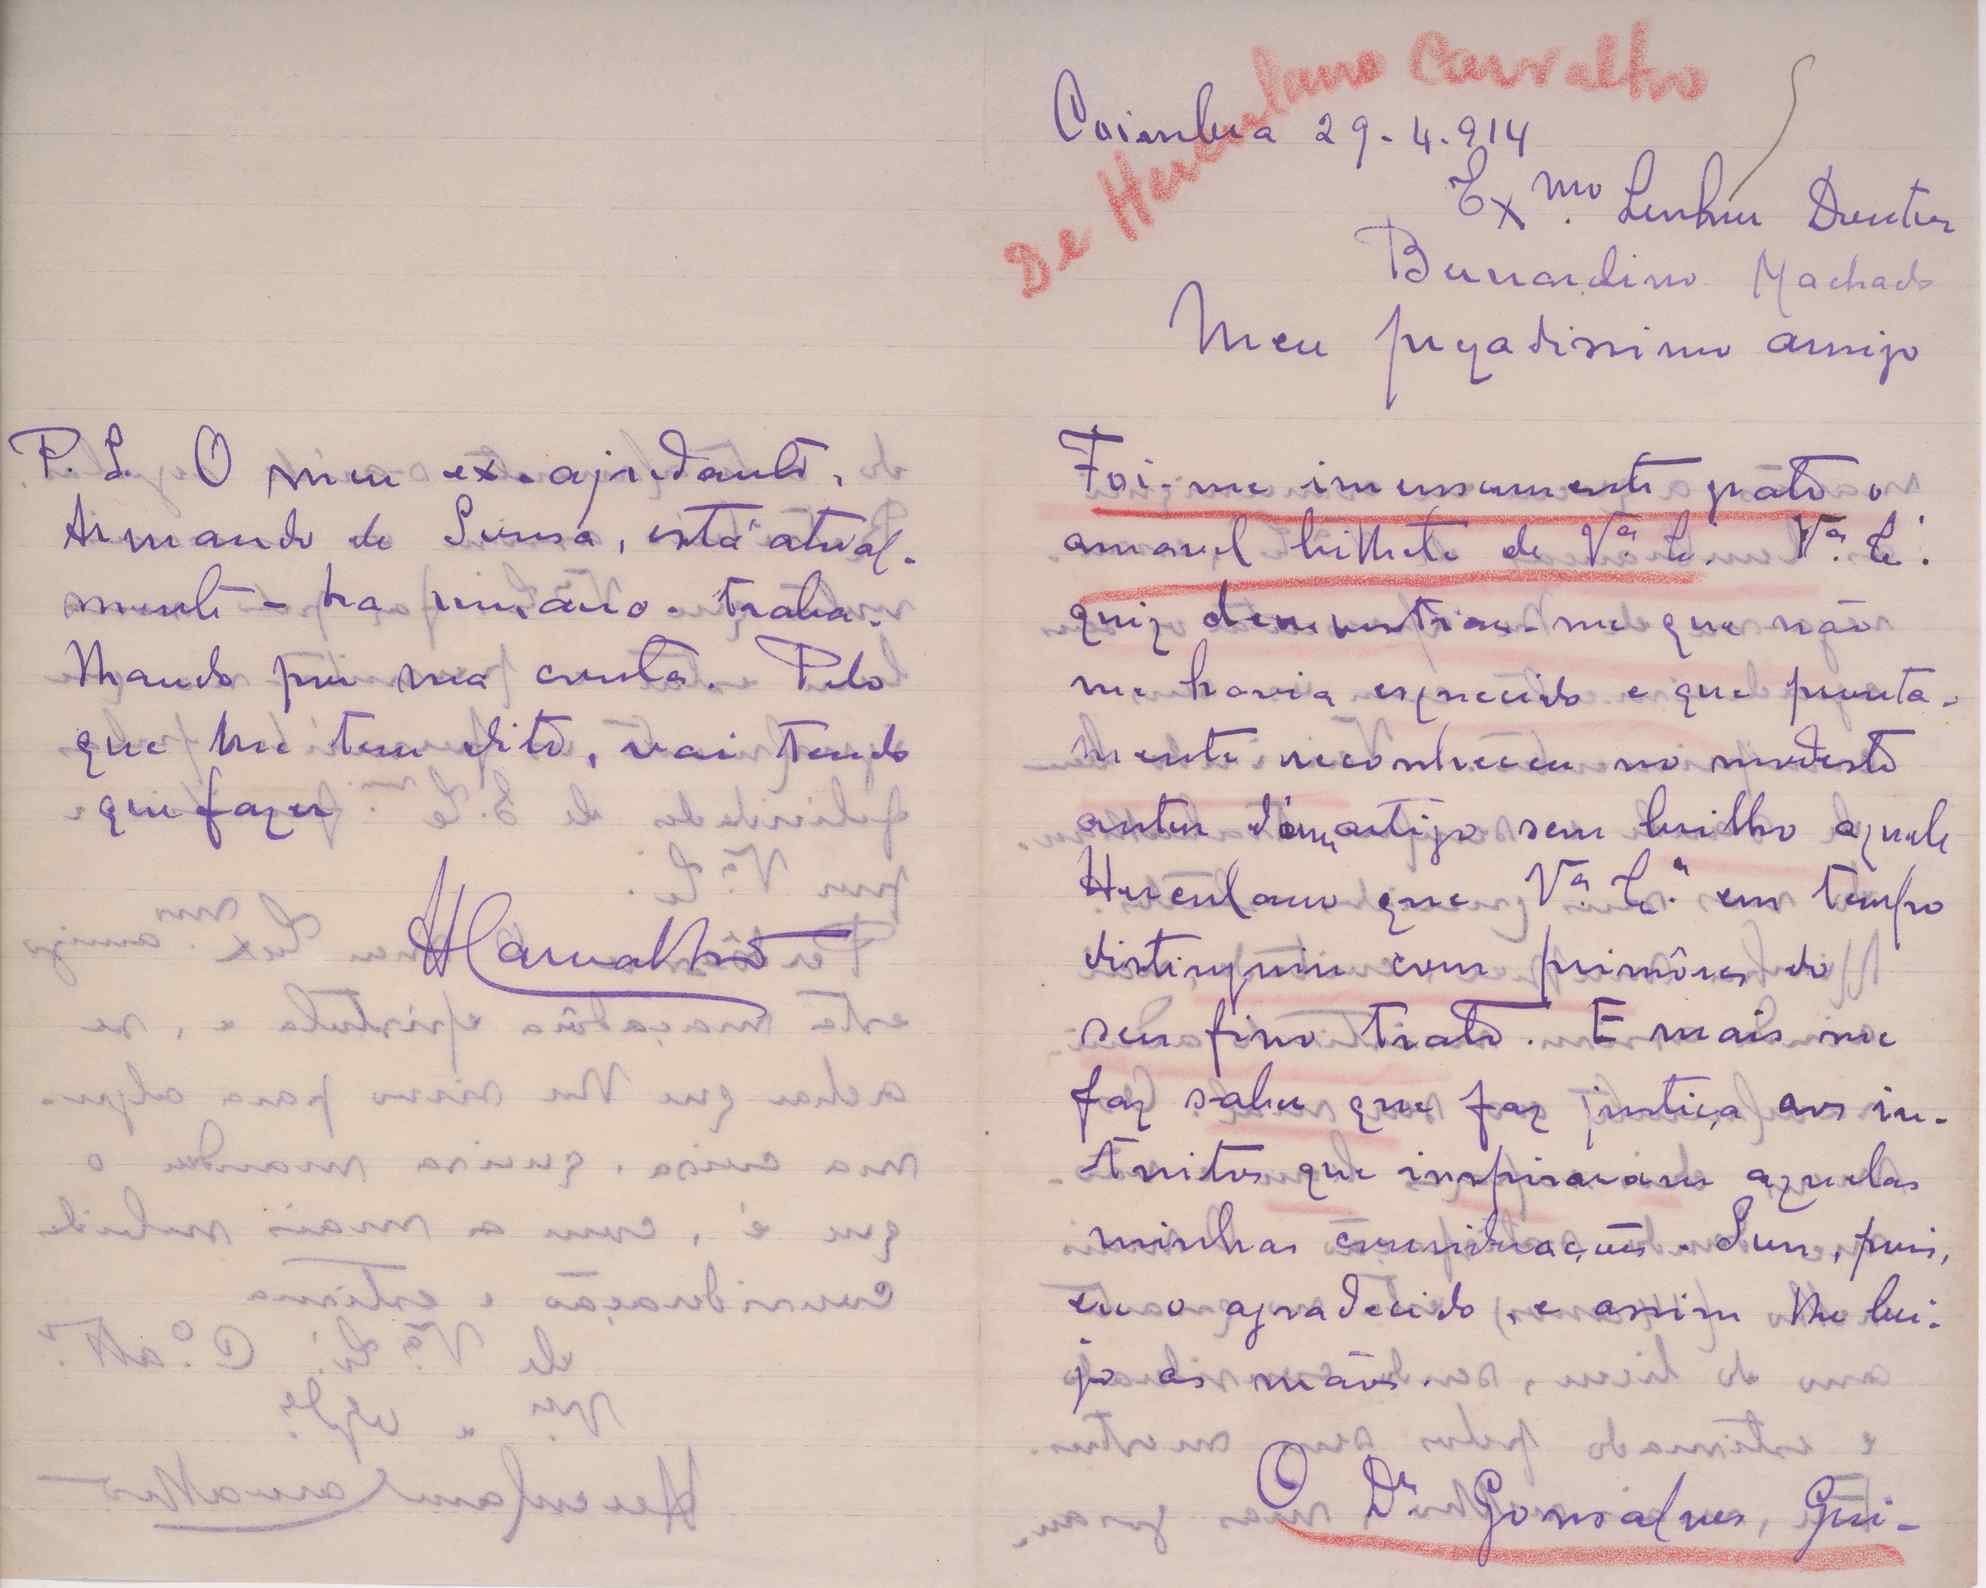 De Herculano Carvalho
Coimbra 29-4-914
Exmo. Senhor Doutor
Bernardino Machado
Meu presadissimo amigo
Foi-me imensamente gráto o
amavel bilhete de Vª. Eª. Vª. Eª.
quiz demonstrar-me que não
me havia esquecido e que pronta-
mente reconheceu no modesto
autor d'um artigo sem brilho aquele
Herculano que Vª. Eª. em tempo
distinguiu com primôres do
seu fino trato. E mais me
faz saber que faz justiça aos in-
tuitos que inspiraram aquelas
minhas considerações. Sou, pois,
eu o agradecido, e assim lhe bei-
jo as mãos.
O Dr Gonsalves Gui-
P. S. O meu ex-ajudante,
Armando de Sousa, está atual-
mente - ha um ano - traba-
lhando por sua conta. Pelo
que me tem dito, vai tendo
que fazer
HCarvalho